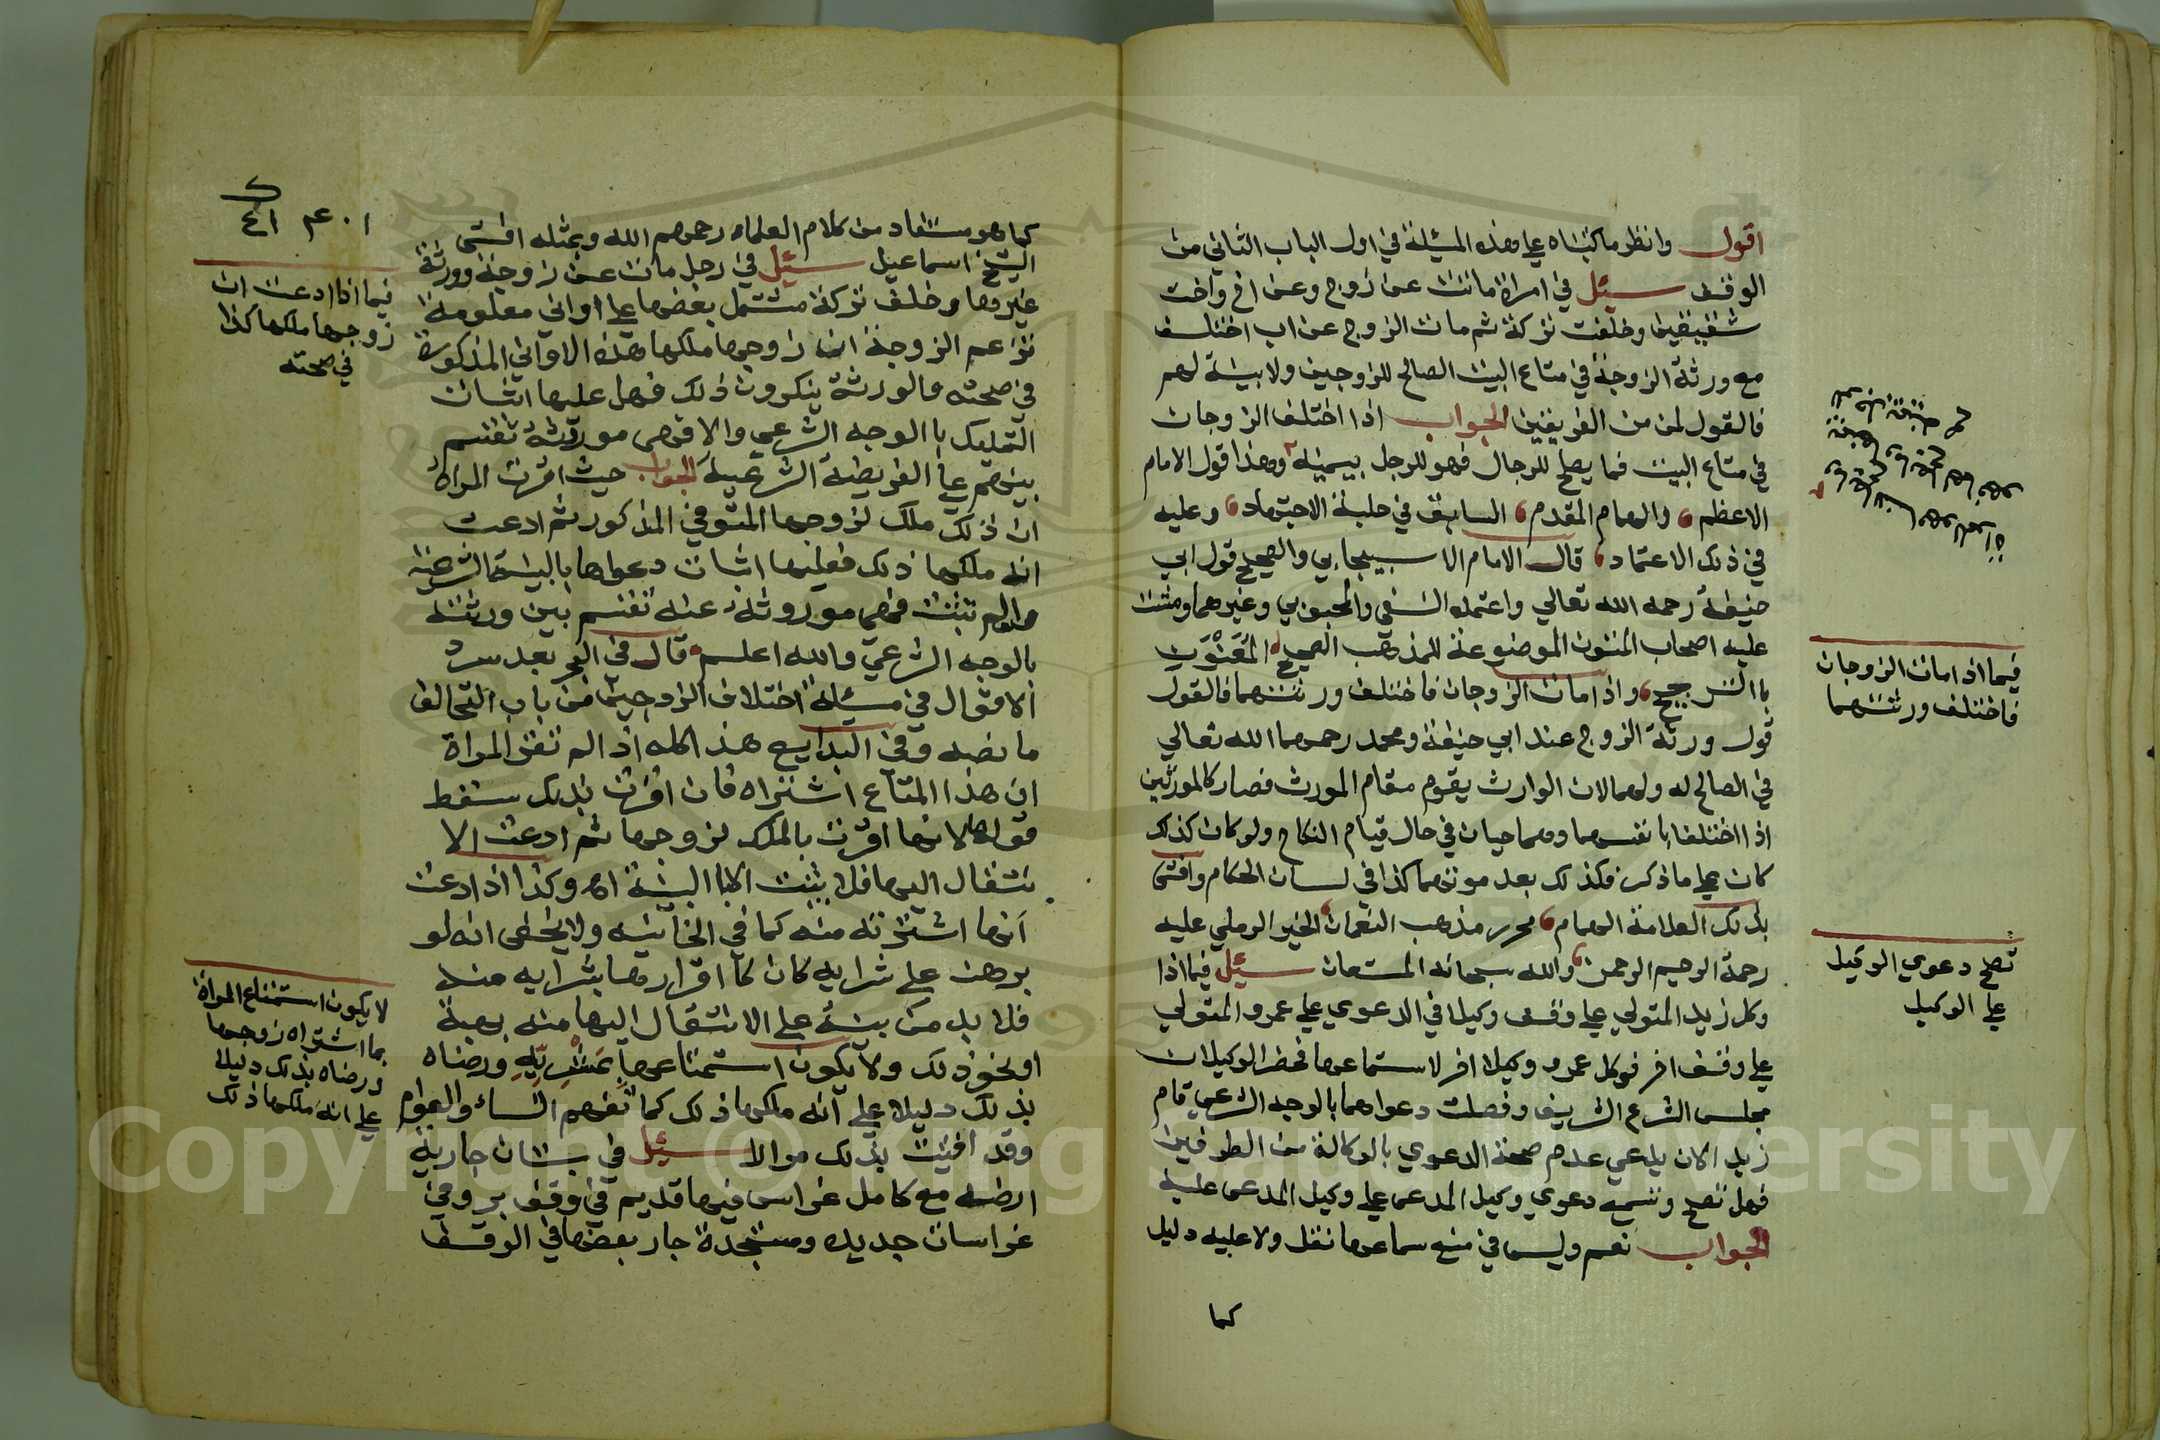 اقول وانظر ما كتبناه على هذه المسئلة في اول الباب الثاني من
الوقف سئيل في امراة ماتت عن زوج وعن اخ واخت
شقيقين وخلفت تركة ثم مات الزوج عن اب اختلف
مع ورثة الزوجة في متاع البيت الصالح للزوجين ولا بينة لهم
فالقول لمن من الفريقين الجواب اذا اختلف الزوجان
في متاع البيت فما يصلح للرجال فهو للرجل بيمينه وهذا قول الامام
الاعظم والهمام المقدم السابق في حلبة الاجتهاد وعليه
في ذلك الاعتماد قال الامام الاسبيجابي والصحيح قول ابي
حنيفة رحمه الله تعالي واعتمده النسفي والمحبوبي وغيرهما ومشت
عليه اصحاب المتون الموضوعة للمذهب الصحيح المُعَنْوَن
باالترجيح واذا مات الزوجان فاختلف ورثتهما فالقول
قول ورثة الزوج عند ابي حنيفة ومحمد رحمهما الله تعالي
في الصالح له ولهما لان الوارث يقوم مقام المورث فصار كالمورثين
اذا اختلفا بانفسهما وهما حيان في حال قيام النكاح ولو كان كذلك
كان على ما ذكر فكذلك بعد موتهما كذا في لسان الحكام وافتى
بذلك العلامة الهمام محرر مذهب النعمان الخير الرملي عليه
رحمة الرحيم الرحمن والله سبحانه المستعان سئيل فيما اذا
وكل زيد المتولي على وقف وكيلا في الدعوي على عمرو المتولي
على وقف اخر فوكل عمرو وكيلا اخر لاستماعها فحضر الوكيلان
مجلس الشرع الشريف وفصلت دعواهما بالوجه الشرعي قام
زيد الان يدعي عدم صحة الدعوي بالوكالة من الطرفين
فهل تصح وتسمع دعوي وكيل المدعى على وكيل المدعى عليه
الجواب نعم وليس في منع سماعها نقل ولا عليه دليل
كما
فيما اذا مات الزوجان
فاختلف ورثتهما
تصح دعوي الوكيل
على الوكيل
كما هو مستفاد من كلام العلماء رحمهم الله وبمثله افتى
الشيخ اسماعيل سئيل في رجل مات عن زوجة وورثة
غيرها وخلف تركة مشتمل بعضها على اواني معلومة
تزعم الزوجة ان زوجها ملكها هذه الاواني المذكورة
في صحته والورثة ينكرون ذلك فهل عليها اثبات
التمليك باالوجه الشرعي والا فهي موروثة تقسم
بينهم على الفريضة الشرعية الجواب حيث اقرت المراة
ان ذلك ملك لزوجها المتوفي المذكور ثم ادعت
انه ملكها ذلك فعليها اثبات دعواها بالبينة الشرعية
وان لم تثبت فهي موروثة عنه تقسم بين ورثته
بالوجه الشرعي والله اعلم قال في البحر بعد سرد
الاقوال في مسئلة اختلاف الزوجين من باب التحالف
ما نصه وفي البدايع هذا كله اذا لم تقر المراة
ان هذا المتاع اشتراه فان اقرت بذلك سقط
قولها لانها اقرت بالملك لزوجها ثم ادعت الا
نتقال اليها فلا يثبت الا باالبينة اه وكذا اذا ادعت
انها اشترته منه كما في الخانية ولا يخفى انه لو
برهن على شرايه كان كاقرارها بشرايه منه
فلا بد من بينة على الانتقال اليها منه بهبة
او نحو ذلك ولا يكون استمتاعها بمَشْرِيِّهِ ورضاه
بذلك دليلا على انه ملكها ذلك كما تفهم النساء والعوام
وقد افتيت بذلك مرارا سئيل في بستان جارية
ارضه مع كامل غراس فيها قديم في وقف بر وفي
غراسات جديده ومستجدة جار بعضها في الوقف
٤١
فيما اذا ادعت ان
زوجها ملكها كذا
في صحته
لا يكون استمتاع المراة
بما اشتراه زوجها
ورضاه بذلك دليلا
على انه ملكها ذلك
Copyright © King Saud University